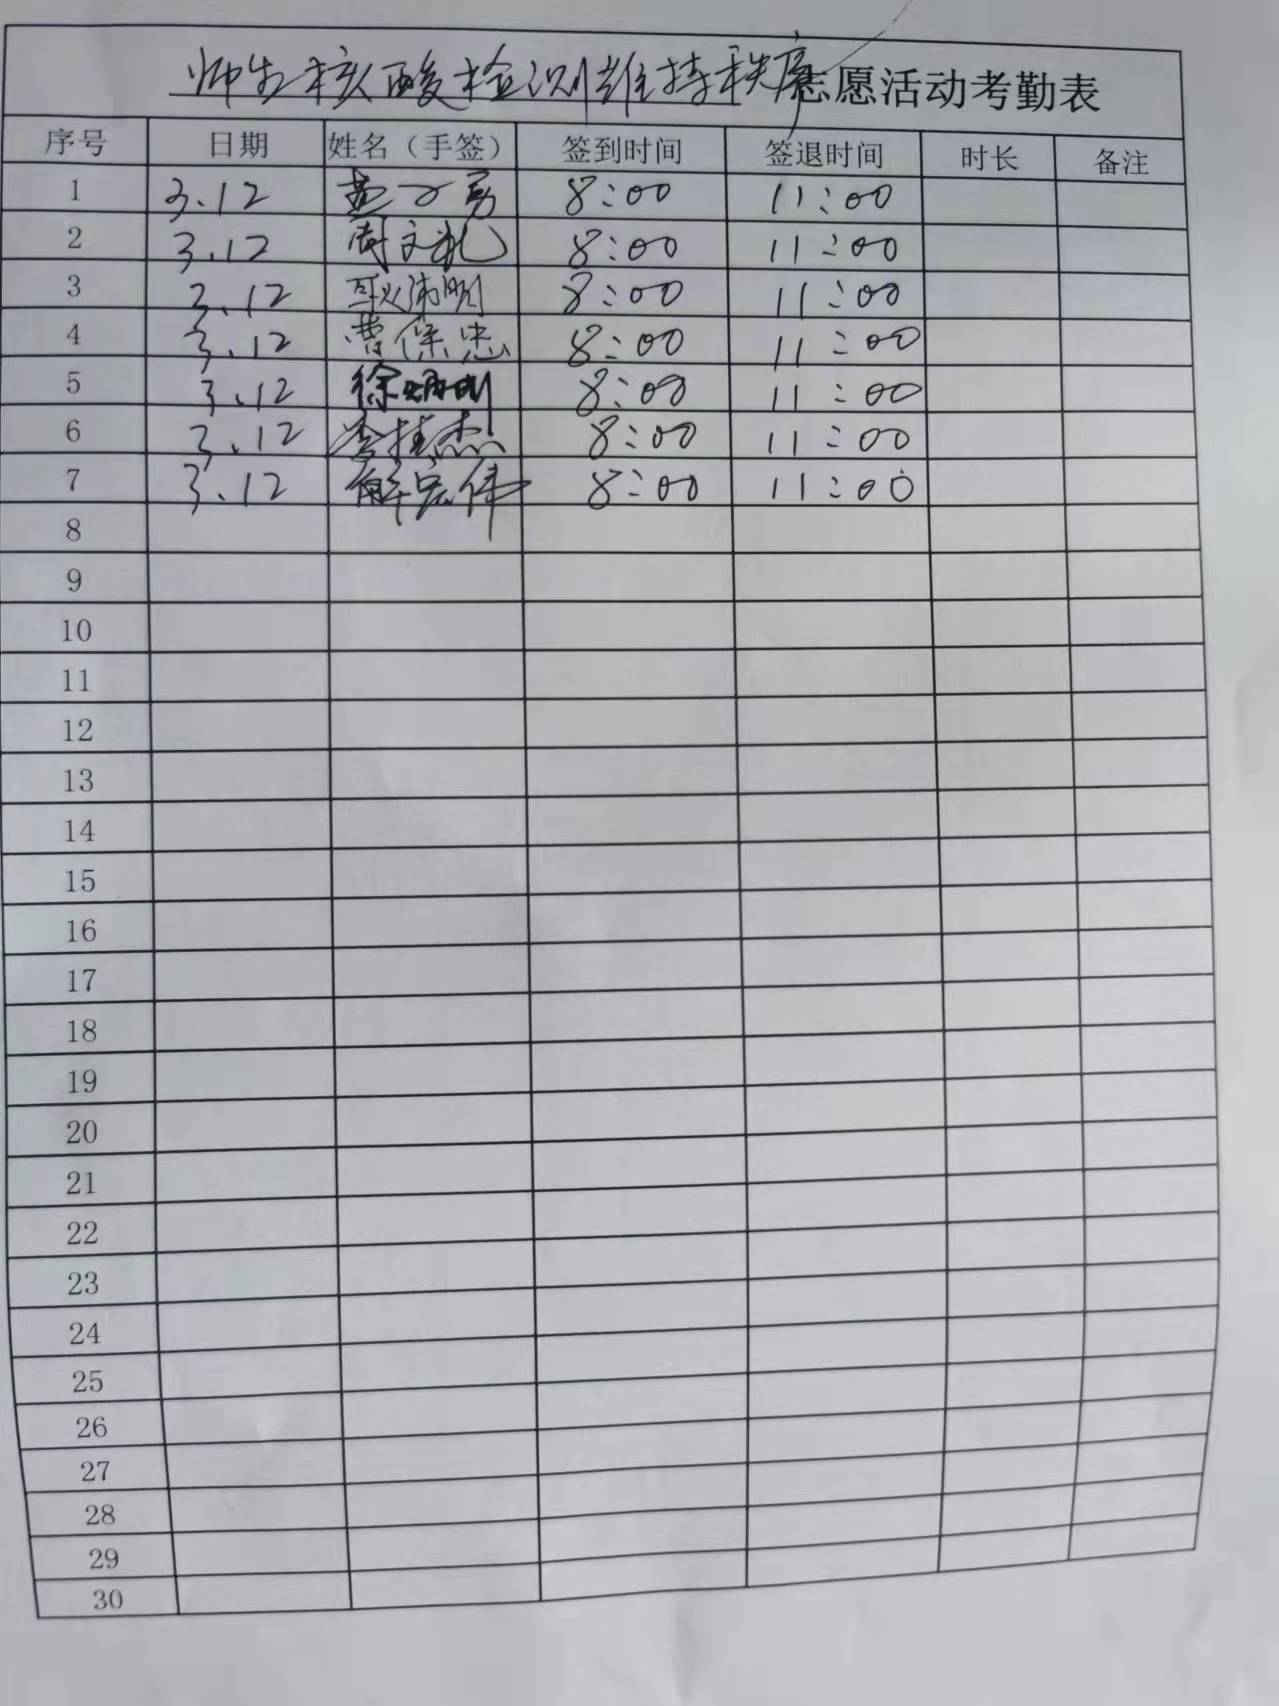 师生核酸检测维持秩序志愿活动考勤表
序号 日期 姓名（手签） 签到时间 签退时间 时长 备注
1 3.12 8:00 11:00
2 3.12 周文礼 8:00 11:00
3 3.12 耿沛明 8:00 11:00
4 3.12 曹保忠 8:00 11:00
5 3.12 徐炳刚 8:00 11:00
6 3.12 李桂杰 8:00 11:00
7 3.12 解宏伟 8:00 11:00
8
9
10
11
12
13
14
15
16
17
18
19
20
21
22
23
24
25
26
27
28
29
30